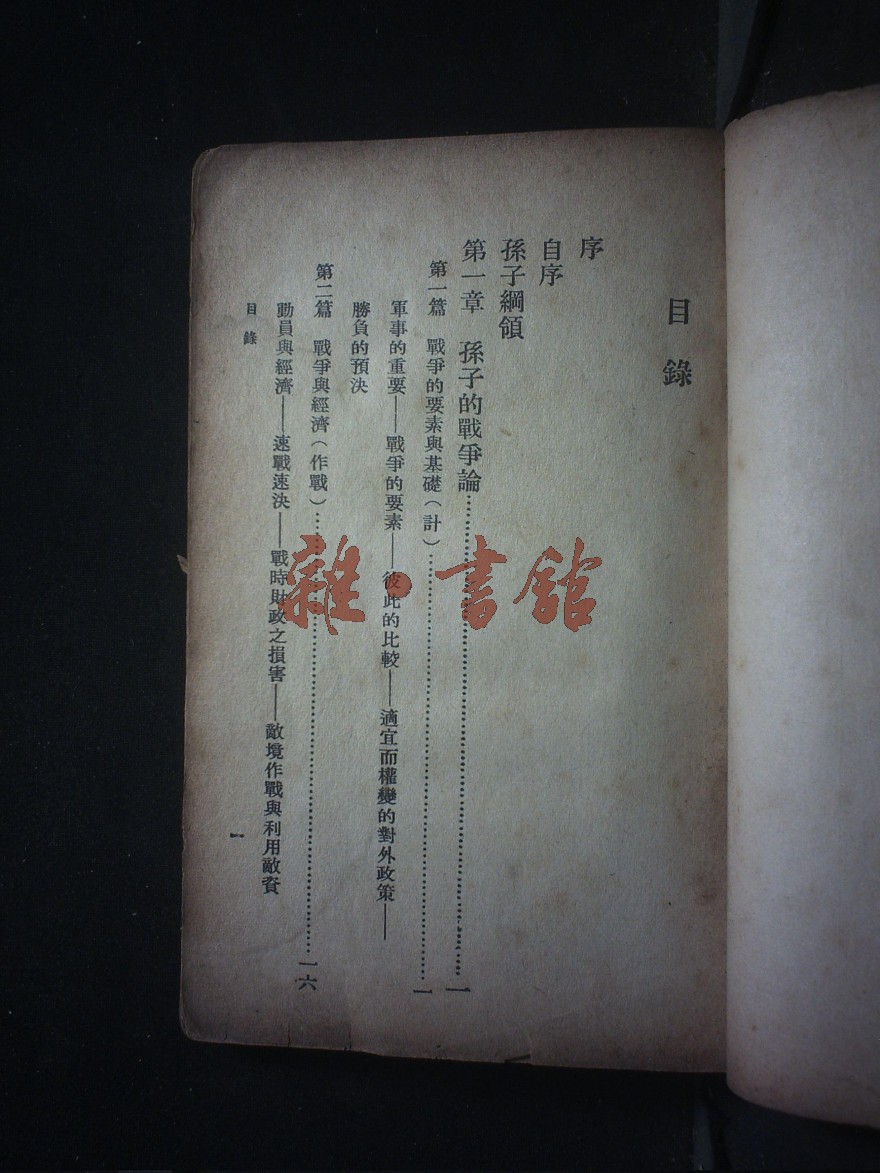 目錄
序
自序
孫子綱領
第一章 孫子的戰爭論……一
第一篇 戰爭的要素與基礎（計）……一
軍事的重要——戰爭的要素——彼此的比較——適宜而權變的對外政策——
勝負的預決
第二篇 戰爭與經濟（作戰）……一六
動員與經濟——速戰速決——戰時財政之損害——敵境作戰與利用敵資
目錄 一
雜·書館